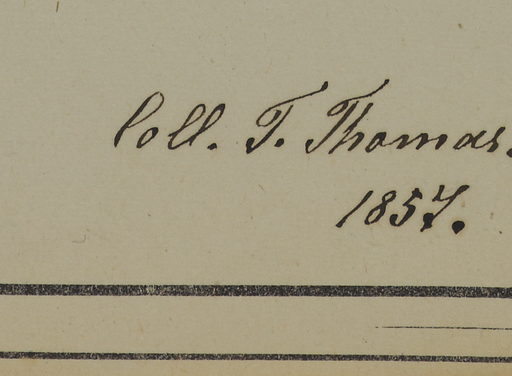 Coll. T. Thomas.
1857.